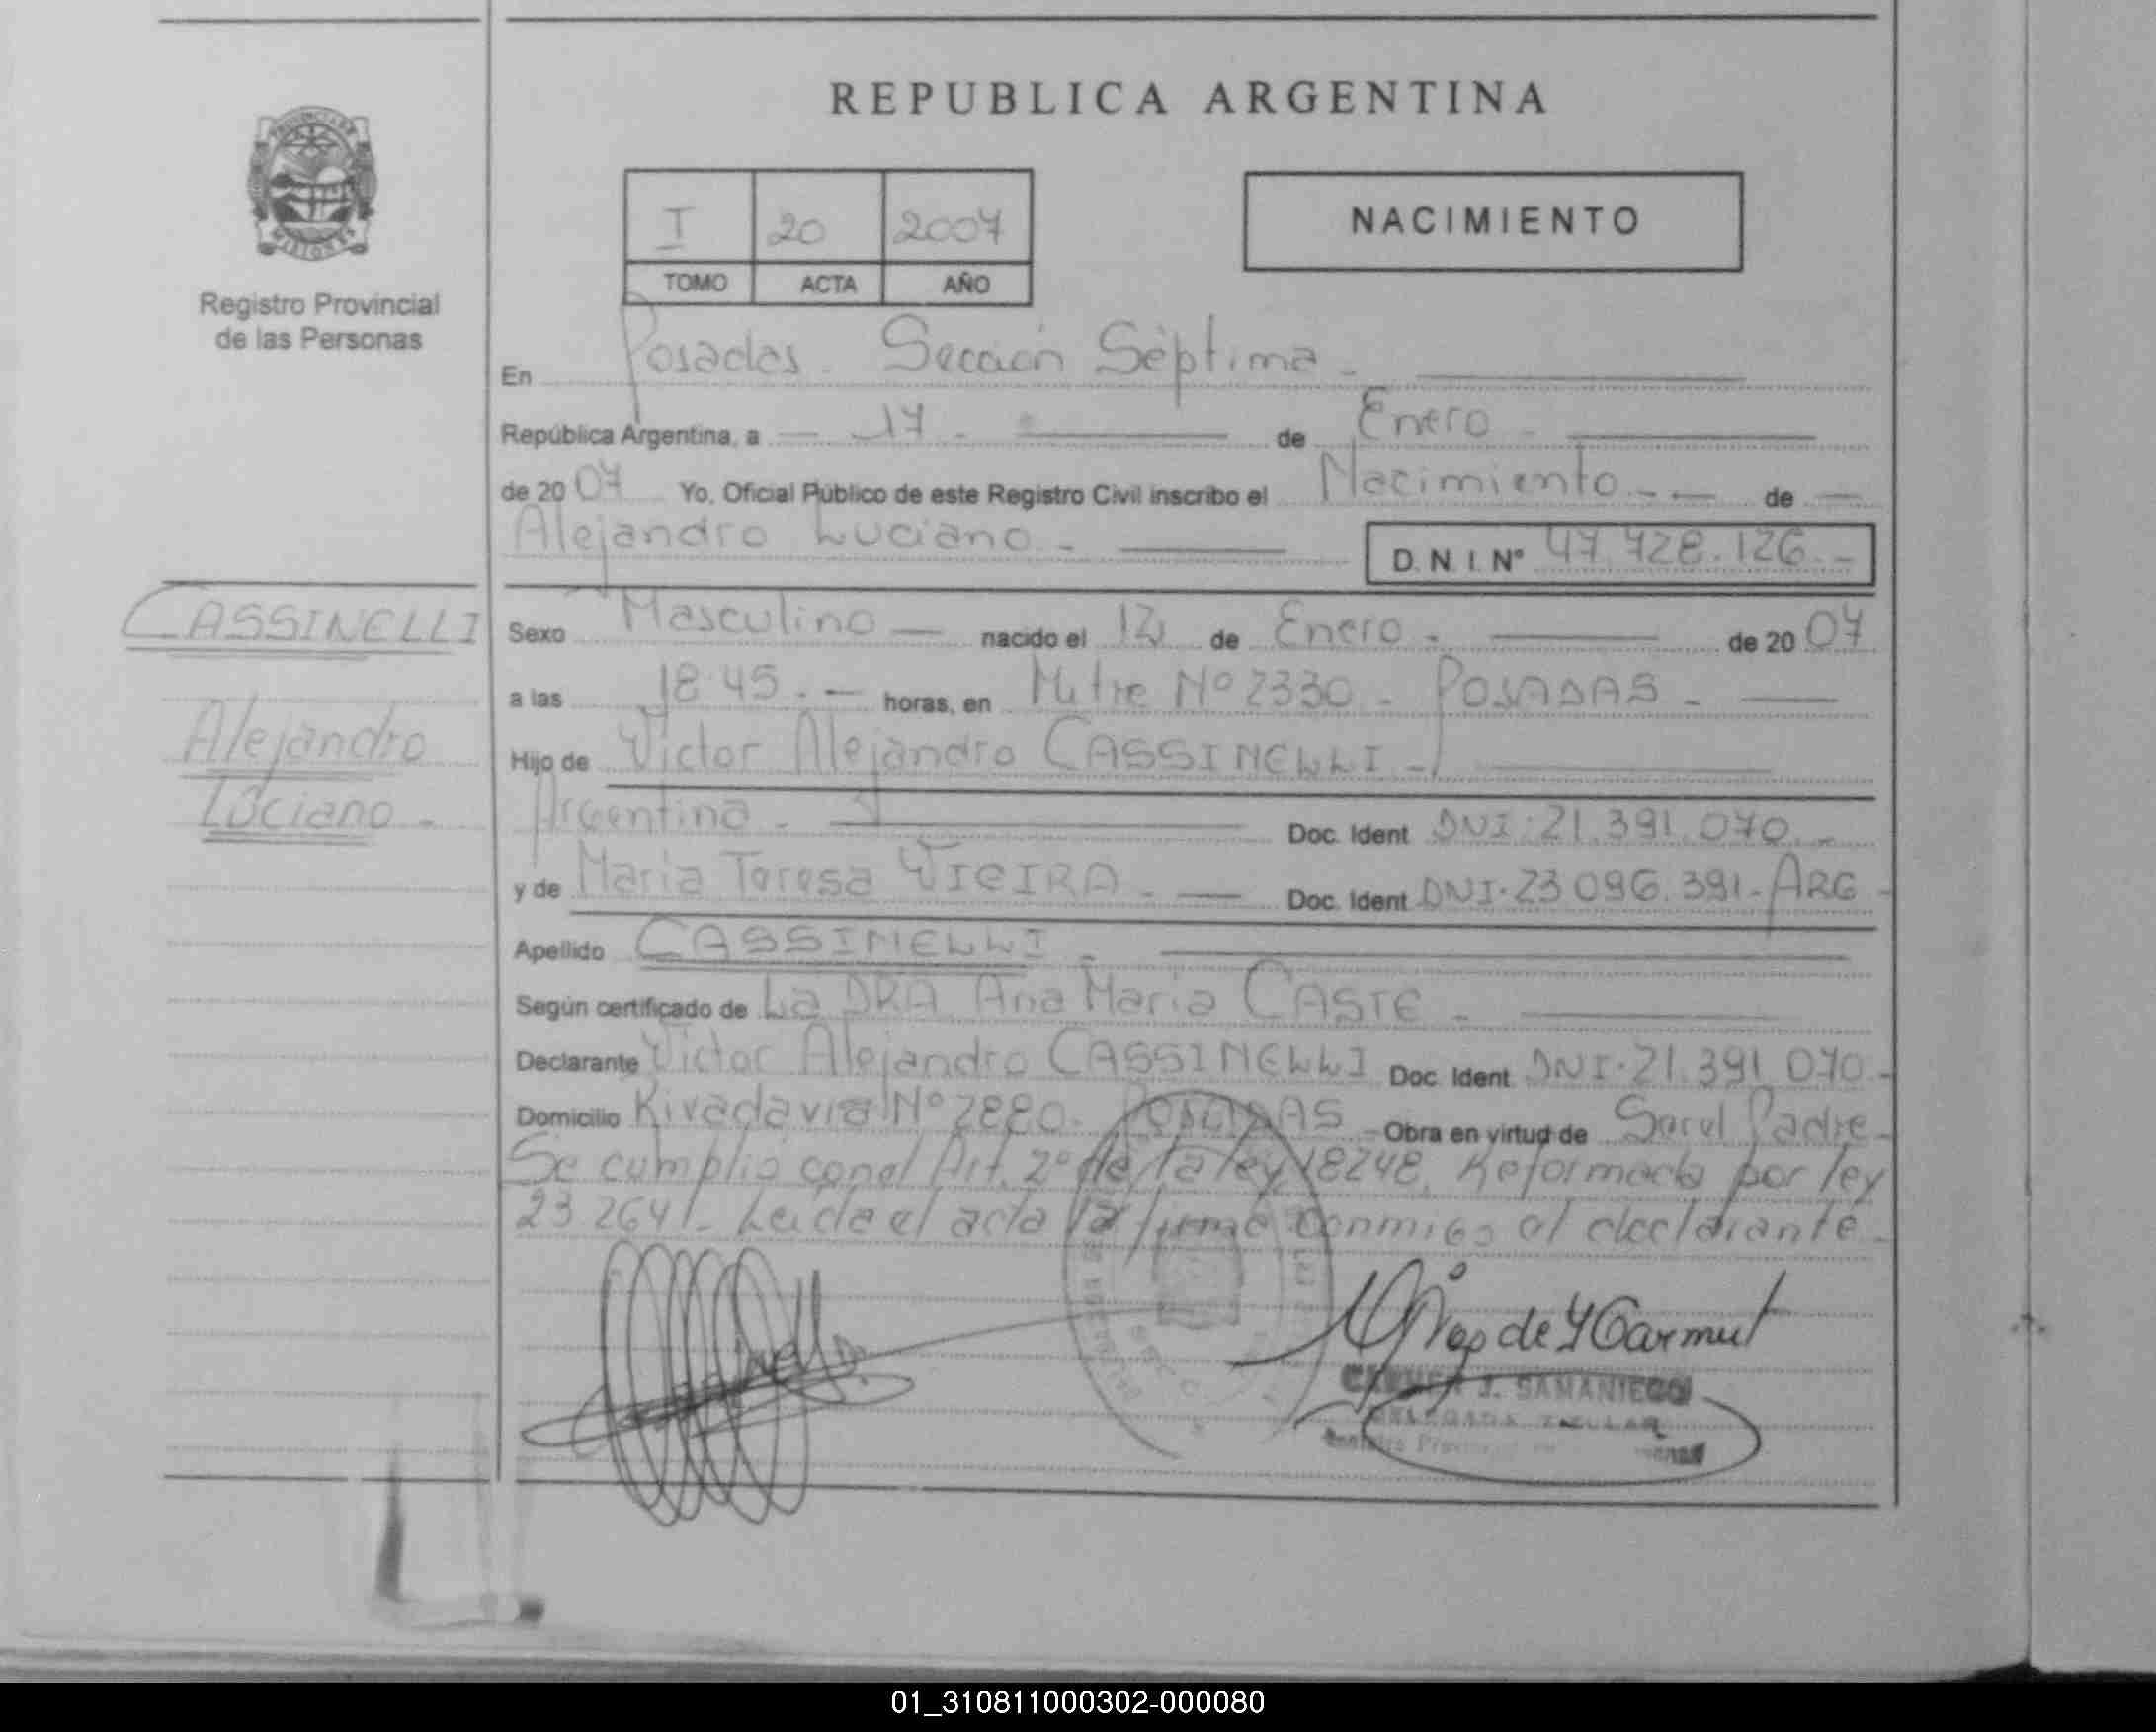 REPUBLICA ARGENTINA
PROVINCIA DE
MISIONES
Registro Provincial
de las Personas
I 20 2007
TOMO ACTA AÑO
NACIMIENTO
En Posadas. Sección Séptima.
República Argentina, a 17. de Enero
de 2007 Yo, Oficial Público de este Registro Civil inscribo el Nacimiento de
Alejandro Luciano D.N.I. Nº 47.728.126.-
CASSINELLI
Alejandro
Luciano.
Sexo Masculino nacido el 12 de Enero de 2007
a las 18.45. horas, en Mitre Nº 2330 - POSADAS -
Hijo de Victor Alejandro CASSINELLI -
Argentino - Doc. Ident DNI: 21.391.070.-
y de Maria Teresa VIEIRA. Doc. Ident DNI. 23.096.391 - ARG -
Apellido CASSINELLI -
Según certificado de La DRA. Ana Maria CASTE -
Declarante Victor Alejandro CASSINELLI Doc. Ident DNI. 21.391.070 -
Domicilio Rivadavia Nº 2880. POSADAS - Obra en virtud de Ser el Padre -
Se cumplio con el Art. 2º de la ley 18248. Reformada por ley
23.264/- Leida el acta la firma conmigo el declarante.
CARMEN J. SAMANIEGO
DELEGADA TITULAR
01_310811000302-000080